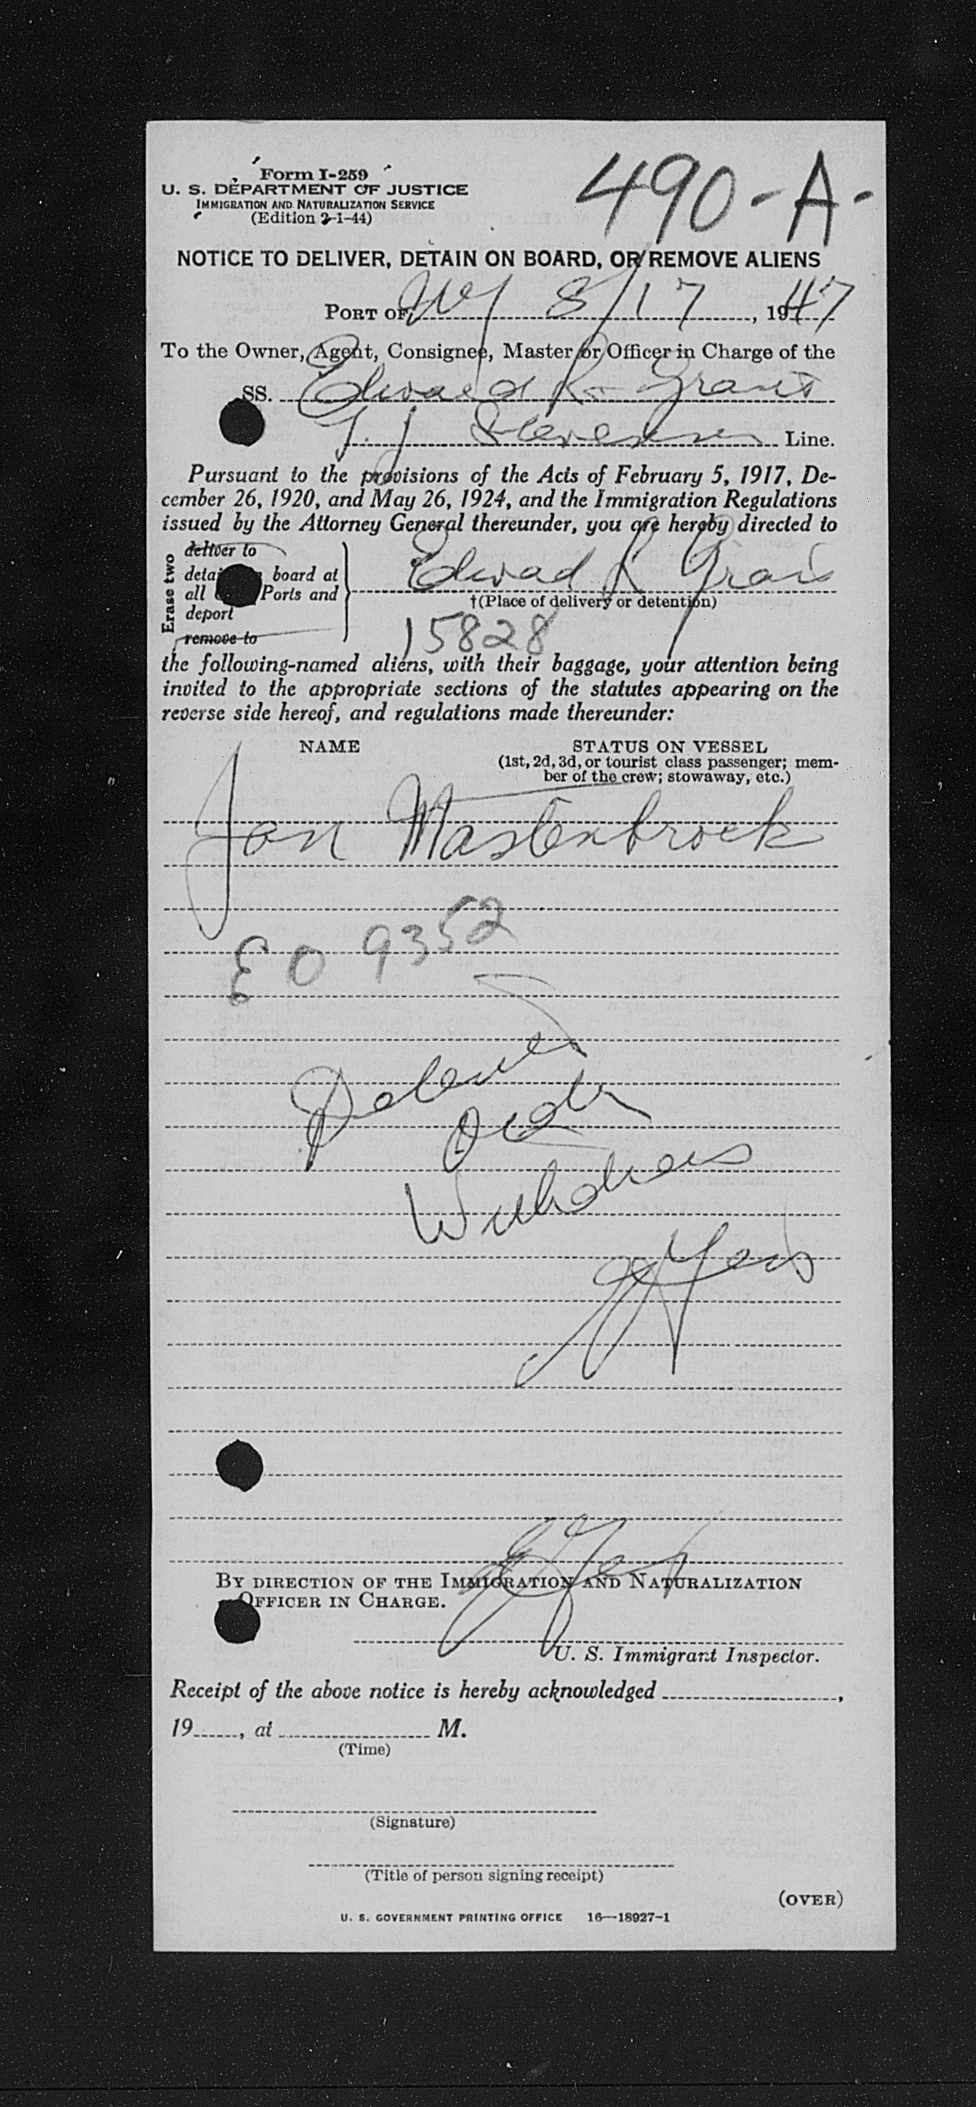 Form I-259
490-A-
U. S. DEPARTMENT OF JUSTICE
IMMIGRATION AND NATURALIZATION SERVICE
(Edition 2-1-44)
NOTICE TO DELIVER, DETAIN ON BOARD, OR REMOVE ALIENS
PORT OF NY 8/17, 1947
To the Owner, Agent, Consignee, Master or Officer in Charge of the
SS. Edward R Grant
T. J. Stevenson Line.
Pursuant to the provisions of the Acts of February 5, 1917, De-
cember 26, 1920, and May 26, 1924, and the Immigration Regulations
issued by the Attorney General thereunder, you are hereby directed to
Erase two
deliver to
detain on board at
all Ports and
deport
remove to
Edward R Grant
†(Place of delivery or detention)
15828
the following-named aliens, with their baggage, your attention being
invited to the appropriate sections of the statutes appearing on the
reverse side hereof, and regulations made thereunder:
NAME STATUS ON VESSEL
(1st, 2d, 3d, or tourist class passenger; mem-
ber of the crew; stowaway, etc.)
Jan Mastenbroek
EO 9352
Detain
Order
Withdrawn
BY DIRECTION OF THE IMMIGRATION AND NATURALIZATION
OFFICER IN CHARGE.
U. S. Immigrant Inspector.
Receipt of the above notice is hereby acknowledged ,
19 , at M.
(Time)
(Signature)
(Title of person signing receipt)
(OVER)
U. S. GOVERNMENT PRINTING OFFICE 16—18927-1